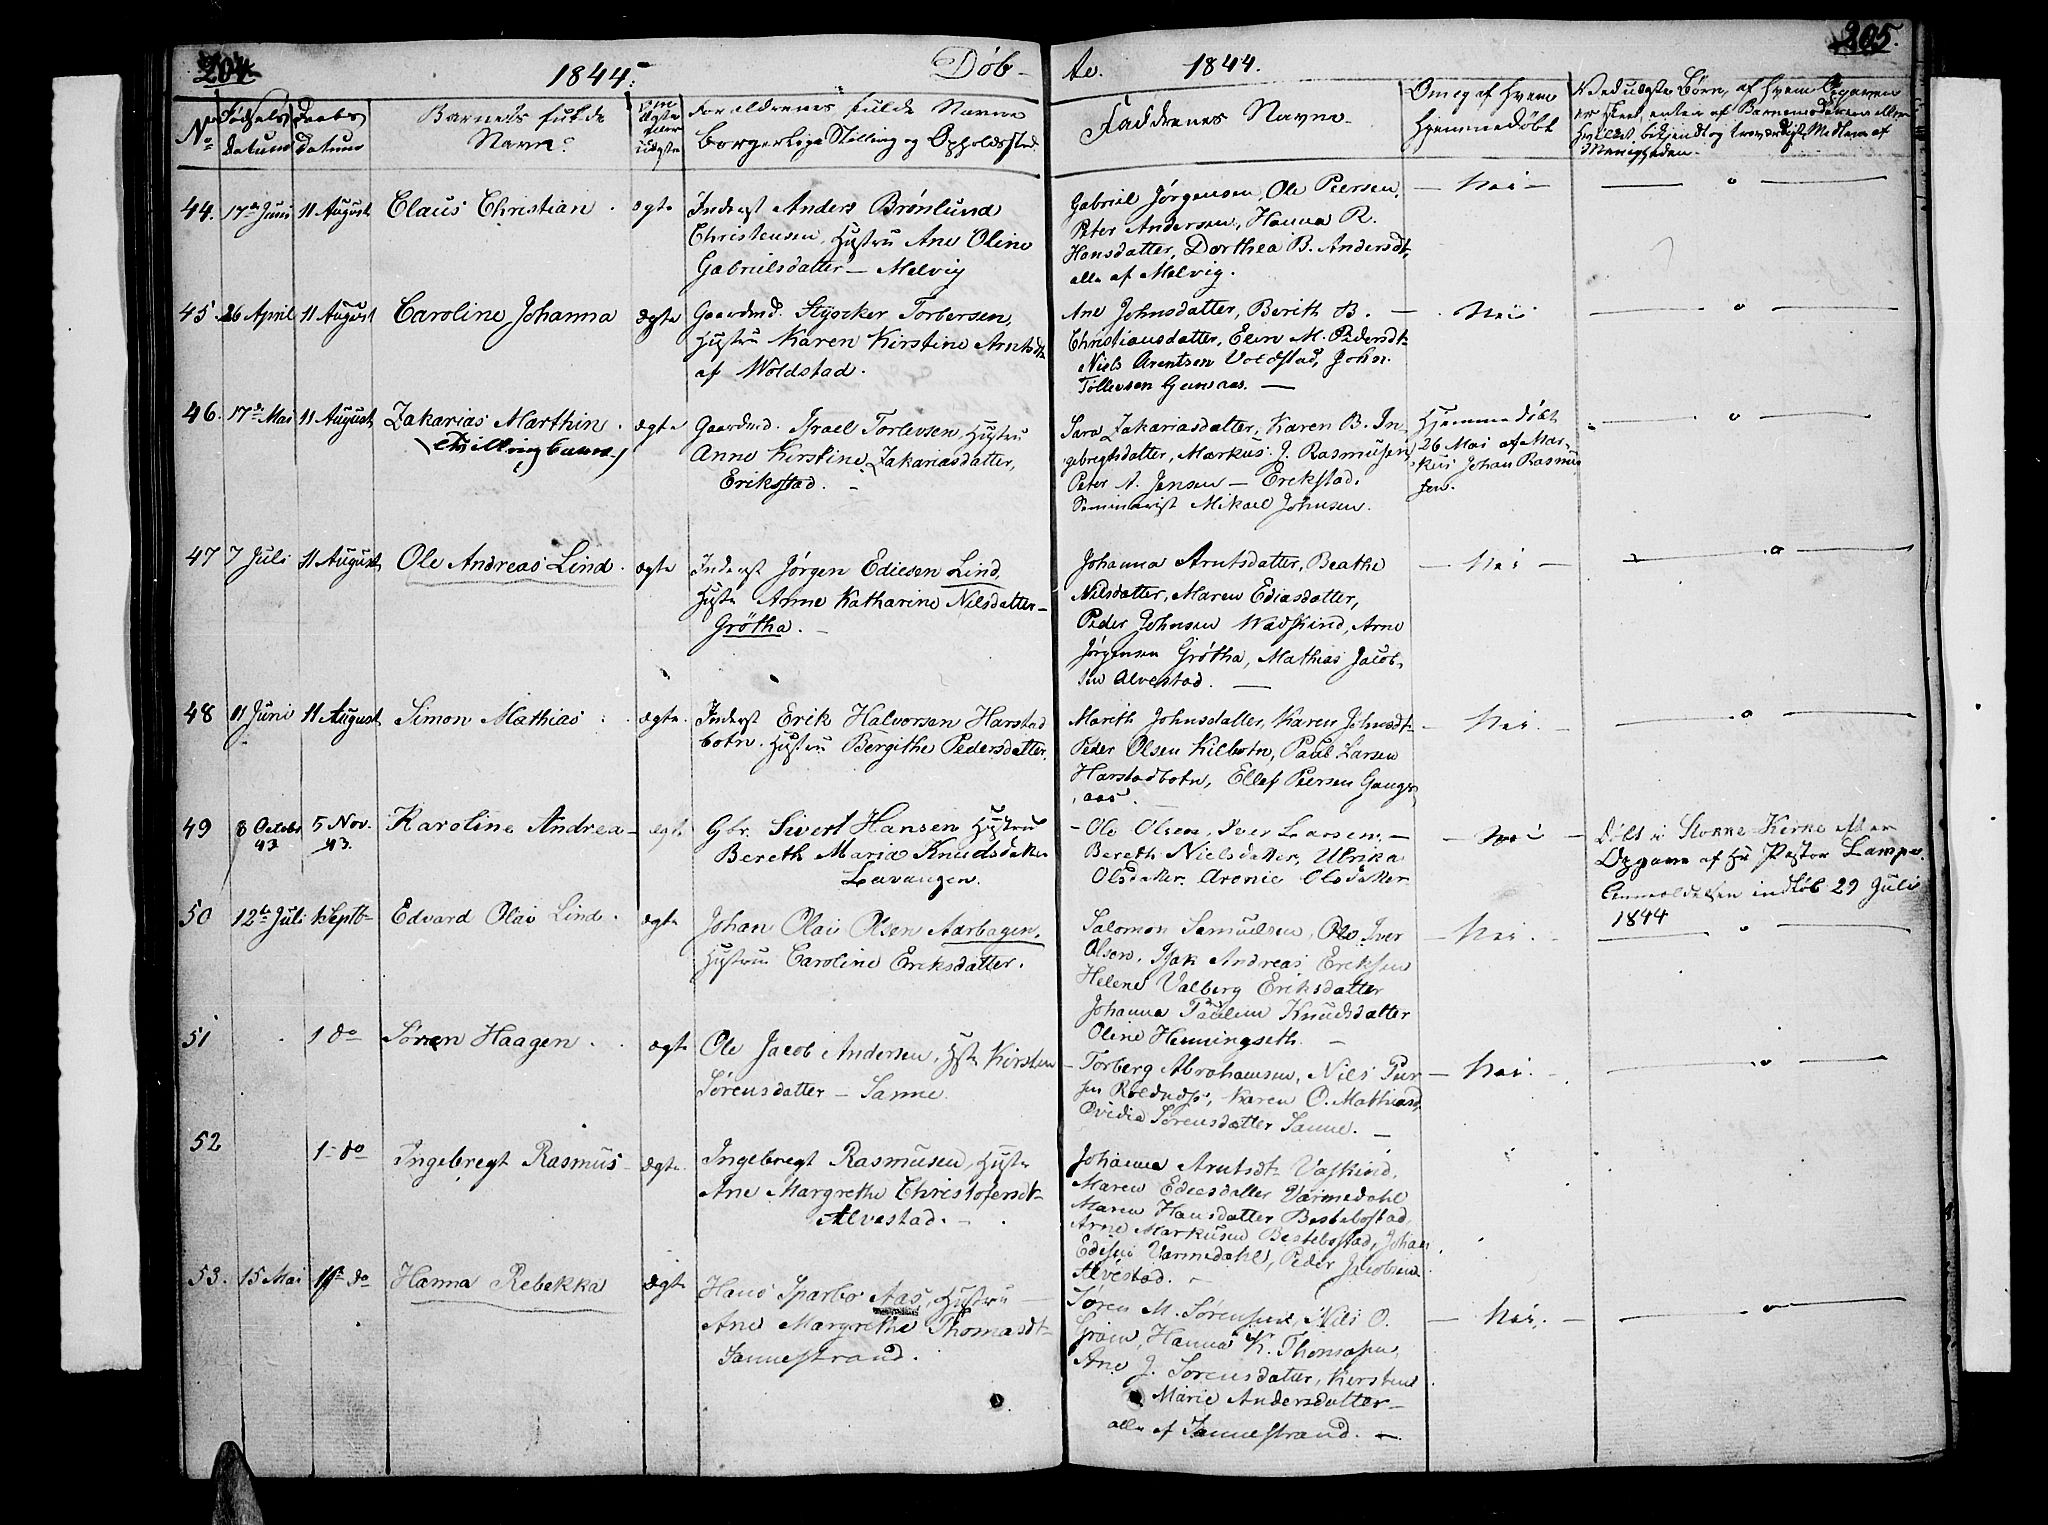 204
1844.
Døb-
te.
1844.
205.
No
Fødsels
datum
Daabs
datum
Barnets fulde
Navn.
Om
Ægte
eller
Uægte
Forældrenes fulde Navne
Borgerlige Stilling og Opholdssted.
Faddrenes Navne.
Om og af Hvem
Hjemmedøbt
Ved uægte Børn, af Hvem Opgaven
er skeet, enten af Barnemoderen eller
Hvilket bekjendt og troværdigt Medlem af
Menigheden.
44. 17de Juni 11 August Claus Christian. ægte
Inderst Anders Brønlund
Christensen, Hustru Ane Oline
Gabrielsdatter - Melvig
Gabriel Jørgensen, Ole Peersen,
Peter Andersen, Hanna R.
Hansdatter, Dorthea B. Andersdt,
alle af Melvig.
- Nei -
45. 26 April 11 August Caroline Johanna ægte
Gaardmd. Styocker Torbersen,
Hustru Karen Kirstine Arntsdt
af Woldstad.
Ane Johnsdatter, Berith B. -
Christiansdatter, Elen M. Pedersdt-
Niels Arentsen Voldstad, John
Tollevsen Gansaas. -
Nei
46. 17de Mai 11 August Zakarias Marthin.
(Tvillingbarn) ægte
Gaardmd. Israel Torlevsen, Hustru
Anne Kirstine Zakariasdatter,
Erikstad. -
Sara Zakariasdatter, Karen B. In-
gebregtsdatter, Markus J. Rasmusen
Peter A. Jensen - Erikstad.
Seminarist Mikael Johnsen.
Hjemmedøbt
26 Mai af Mar-
kus Johan Rasmu
sen.
47 7 Juli 11 August Ole Andreas Lind. ægte
Inderst Jørgen Ediesen Lind,
Hustr Anne Katharine Nilsdatter -
Grøtha. -
Johanna Arntsdatter, Beathe
Nilsdatter, Maren Ediasdatter,
Peder Johnsen Wadskind, Arne
Jørgensen Grøtha, Mathias Jacob-
sen Alvestad. -
- Nei -
48 11 Juni 11 August Simon Mathias ægte.
Inderst Erik Halvorsen Harstad
botn. Hustru Bergithe Pedersdatter.
Marith Johnsdatter, Karen Johnsdt-
Peder Olsen Kilbotn, Paul Larsen
Harstadbotn, Ellef Peersen Gangs
aas. -
- Nei. -
49 8 Octobr
43 5 Nov.
43. Karoline Andrea - ægte
Gbr. Sivert Hansen Hustru
Bereth Maria Knudsdatter
Lavangen.
- Ole Olsen, Iver Larsen, -
Bereth Nielsdatter, Ulrika
Olsdatter. Arenie Olsdatter.
- Nei -
Døbt i Kirke efter
Opgave af Hr Pastor Lampe.
Anmeldelsen indløb 29 Juli
1844
50 12te Juli 1 Septb- Edvard Olai Lind. ægte
Johan Olai Olsen Aarbogen,
Hustru Caroline Eriksdatter.
Salomon Samuelsen, Ole Iver
Olsen, Isak Andreas Eriksen
Helene Valberg Eriksdatter
Johanna Paulin Knudsdatter
Oline Henningseth. -
- Nei. -
51 1 do Søren Haagen. ægte
Ole Jacob Andersen, Hstr Kirsten
Sørensdatter - Sanne.
- Torberg Abrahamsen, Nils Peer
sen, Karen O. Mathiasd,
Ovidia Sørensdatter Sanne. -
- Nei. -
52 1- do Ingebregt Rasmus - ægte.
Ingebregt Rasmusen, Hustr
Ane Margrethe Christofersdt-
Alvestad. -
Johanna Arntsdt- Vaskind,
Maren Ediesdatter Varmedahl
Maren Hansdatter Bestebostad,
Arne Markusen Bestebostad, Johan
Edisen Varmedahl, Peder Jacobsen
Alvestad. -
53. 15 Mai 1ste do Hanna Rebekka ægte
Hans Sparbo Aas, Hustru -
Ane Margrethe Thomasdt-
Sannestrand.
Søren M. Sørensen, Nils O.
Hanna K. Thomasen,
Ane J. Sørensdatter, Kirstine
Marie Andersdatter -
alle af Sannestrand. -
- Nei. -